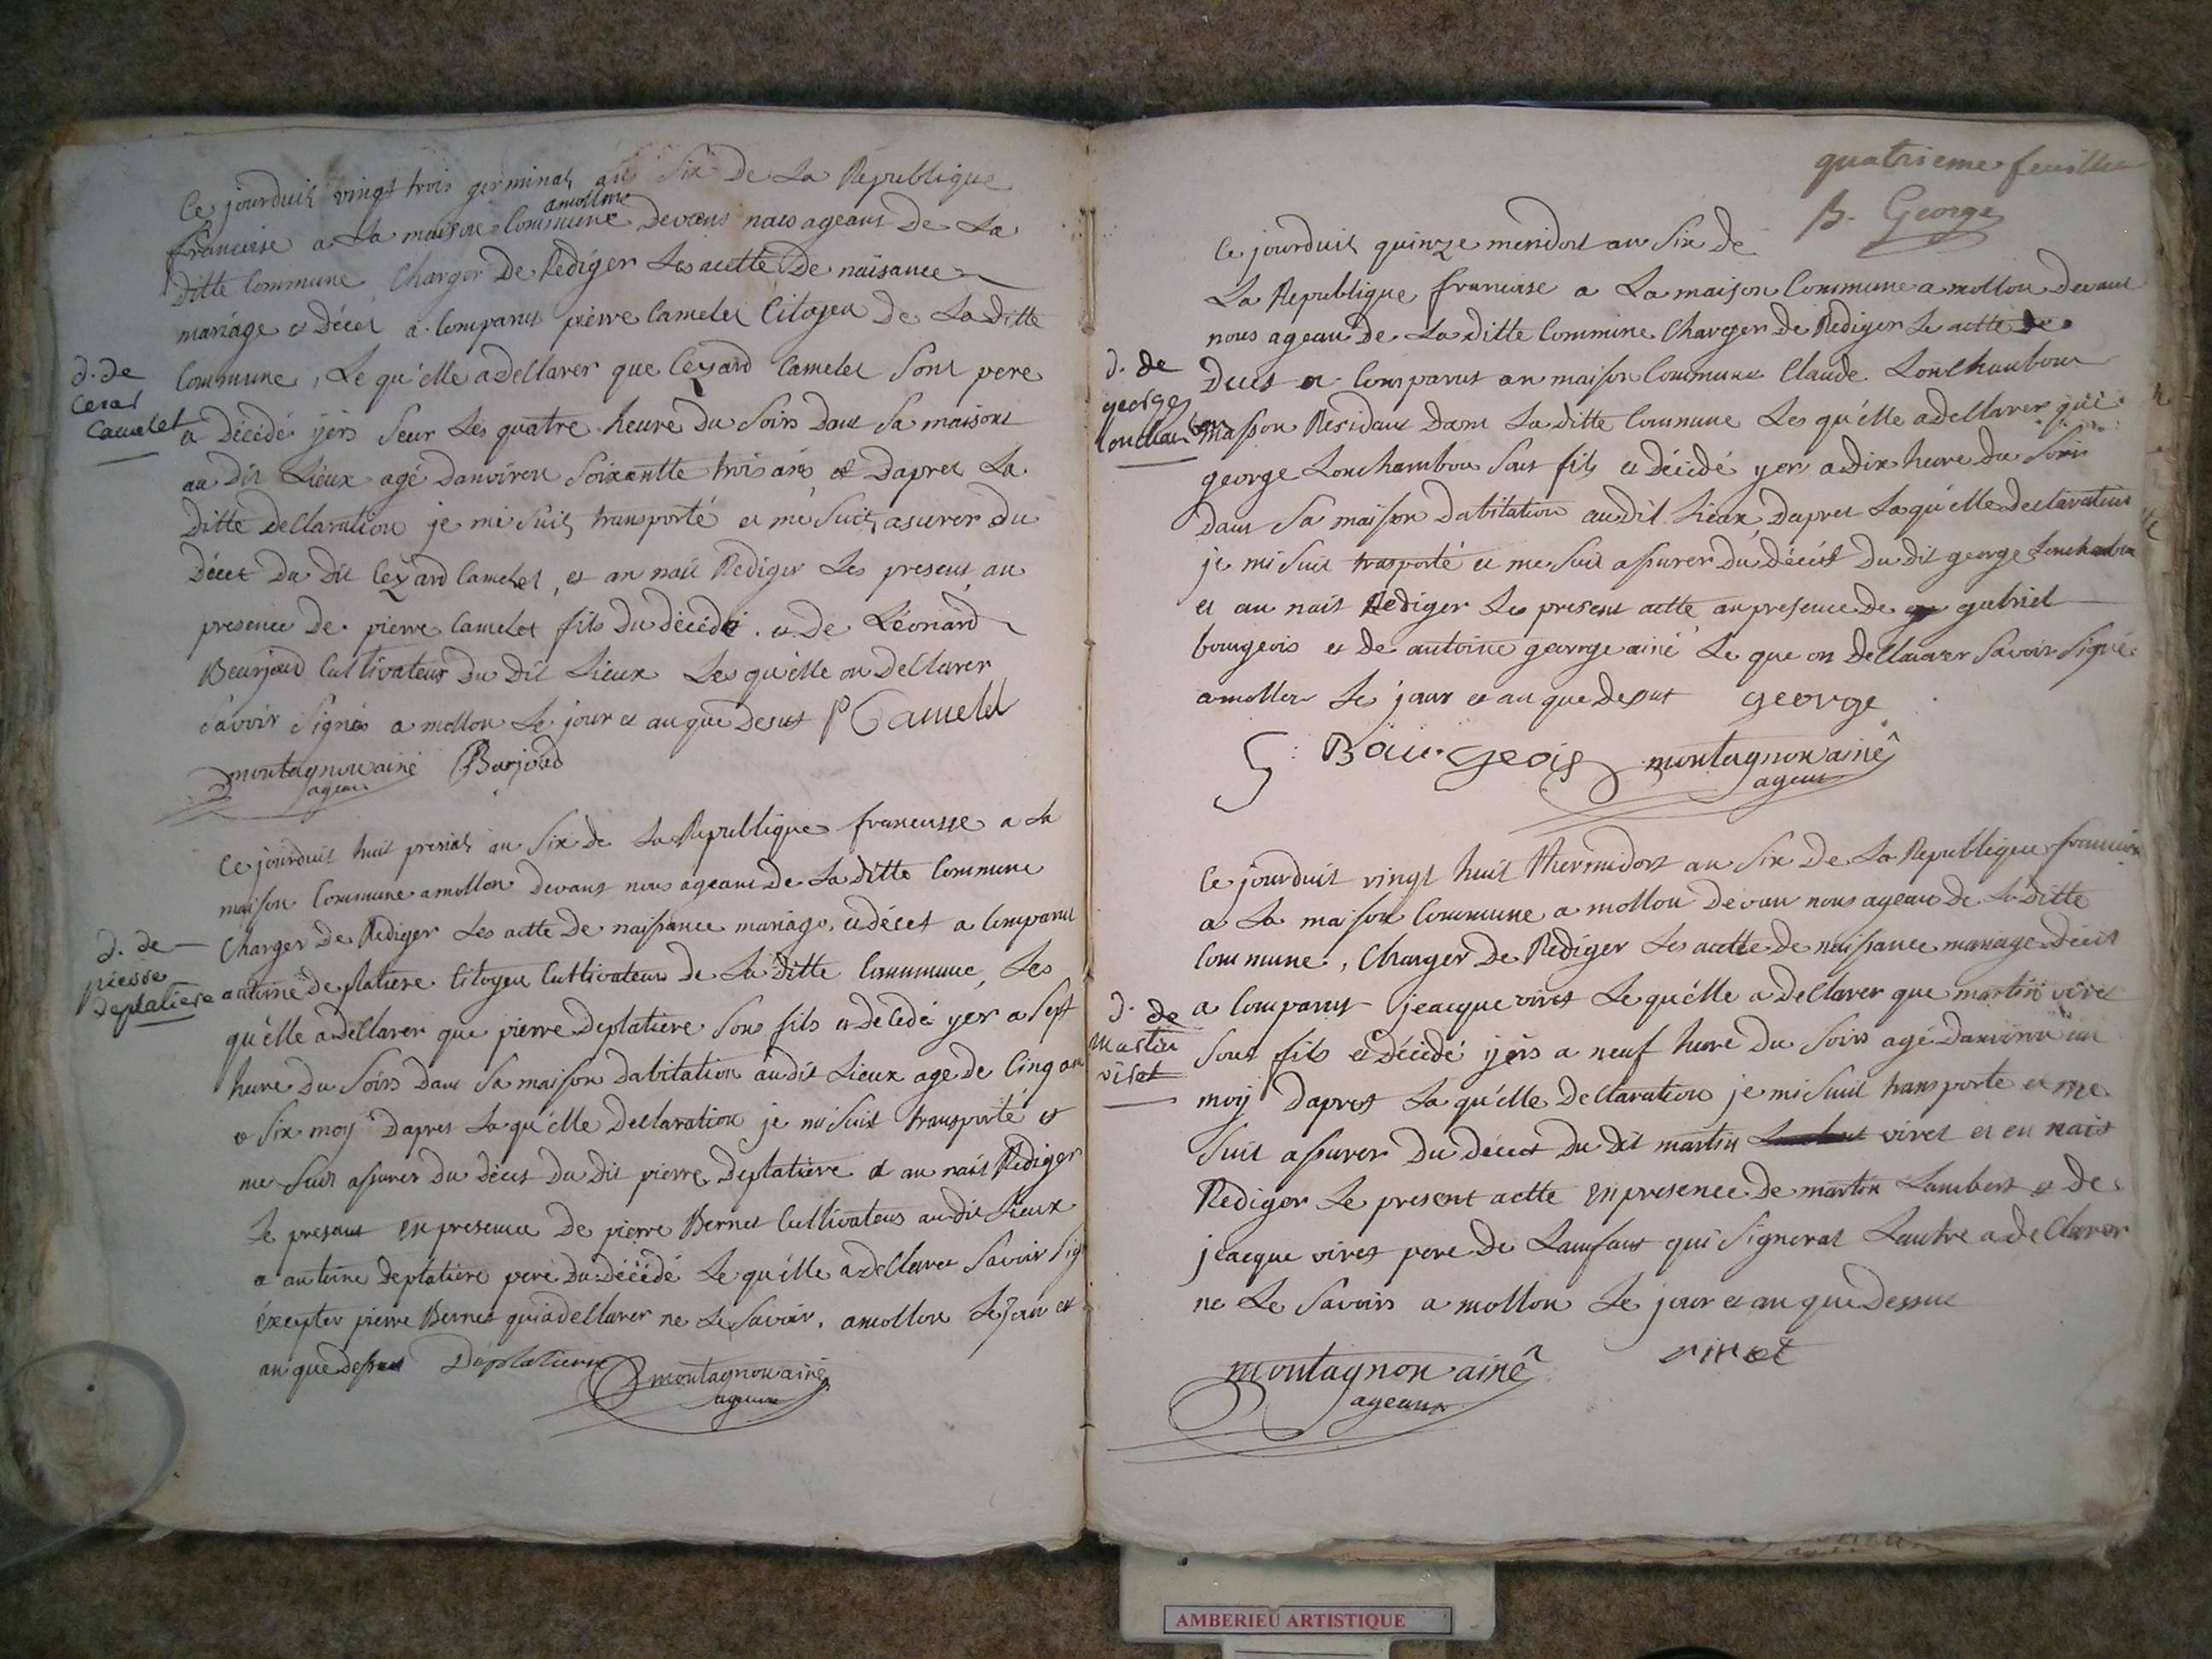 Ce jourduit vingt trois germinal an Six De La Republique
amollon
francoise a La maison Commune Devans nous ageant De La
ditte Commune Charger De Rediger Les actte De naisance
mariage et Décet a Comparus pierre Camelet Citoyen De La Ditte
d. de
Cesar
Camelet
Commune, Le qu'elle a Dellarer que Cezard Camelet Sont pere
et Décédé yers Seur Les quatre heure Du Soirs Dans Sa maisont
au Dit Lieux agé Danviron Soixantte trois ans et Dapret La
Ditte Dellaration je mi Suit transporté et me Suit asurer Du
Décet Du Dit Cezard Camelet, et an nait Rediger Les present au
presence De pierre Camelet fils Du décédé. et De Léonard
Beurjoud Cultivateur Du Dit Lieux Les qu'elle on Dellarer
Savoir Signés a mollon Le jour et an que Desut P Camelet
montagnon ainé Burjoud
ageant
Ce jourduit huit prerial an Six De La Republique francusse a La
maison Commune amollon Devant nous ageant De La ditte Commune
d. de
pierre
Deplatiere
Charger De Rediger Les actte De naissance mariage et décet a Comparut
antoine Deplatiere Citoyen Cultivateur De La Ditte Commune, Les
qu'elle a Dellarer que pierre Deplatiere Sont fils et Decedé yer a Sept
heure Du Soirs Dans Sa maison Dabitation audit Lieux age De Cinq an
et Six moy Dapres La qu'elle Dellaration je mi Suit transporté et
me Suit assurer Du décet Du Dit pierre Deplatiere et an nait Rediger
Le present en presence De pierre Bernet Cultivateur au dit Lieux
et antoine Deplatiere pere Du Décédé Le qu'elle a Dellarer Savoir Sig
éxcepter pierre Bernet qui a dellarer ne Le Savoir. amollon Le jour et
an que Dessut Deplatiere montagnon ainé
ageant
quatrieme feuillet
B. George
Ce jourduit quinze mesidort an Six De
La Republique francoise a La maison Commune a mollon Devant
nous ageant De La Ditte Commune Charger De Rediger Le actte De
d. de
george
Lonchambon
Decet a Comparut an maison Commune Claude Lonchambon
masson Residant Dans La ditte Commune Les qu'elle a dellarer que
george Lonchambon Sont fils et Décédé yer a Dix heure Du Soirs
Dans Sa maison Dabitation audit Lieux Dapret Laqu'elle declaration
je mi Suit trasporté et me Suit assurer Du décest Du dit george Lonchambon
et an nait Rediger Les present actte an presence De gabriel
bourgeois et de antoine george ainé Le que on Dellarer Savoir Signé
amollon Le jour et an que Desut george
G: Bourgeois montagnon ainé
ageant
Ce jourduit vingt huit thermidort an Six De La Republique francoise
a La maison Commune a mollon Devan nous ageant De La Ditte
Commune, Charger De Rediger Les actte De naissance mariage Décet
d. de
Martin
viret
a Comparut jeacque viret Le qu'elle a Dellarer que martin viret
Sont fils et Décédé yers a neuf heure Du Soirs agé Danviron un
moy Dapret La qu'elle Dellaration je mi Suit transporte et me
Suit assurer Du Décet Du Dit martin viret et en nait
Rediger Le present actte en presence De martin Lambert et De
jeacque viret pere De Lanfant qui Signerat Lautre a dellarer
ne Le Savoirs a mollon Le jour et an que Dessut
montagnon ainé viret
ageant
AMBERIEU ARTISTIQUE